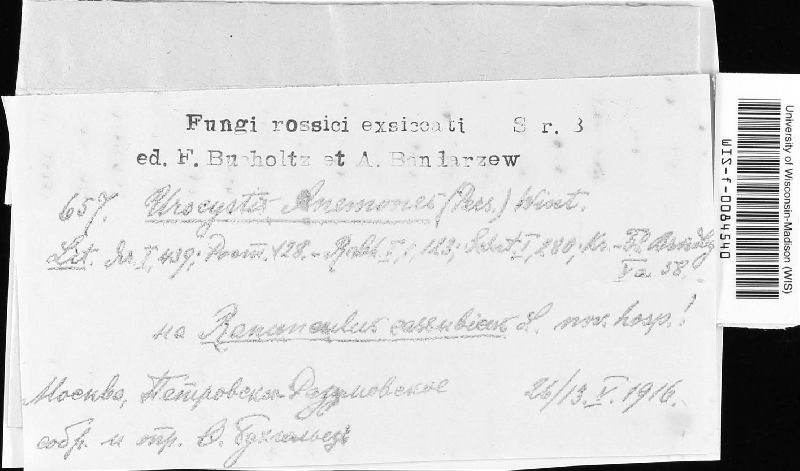 Fungi rossici exsiccati S r. B
ed. F. Bucholtz et A. Bondarzew
657. Urocystis Anemones (Pers.) Wint.
Lit. I, 439; 128. - Rabh. I, 1, 123; I, 280; Kr.-Fl.
Va 58.
на Ranunculus cassubicus L. nov. hosp.!
Москва, Петровско-Разумовское 26/13. V. 1916.
собр. и опр. Ѳ. Бухгольцъ
University of Wisconsin-Madison (WIS)
WIS-f-0084540